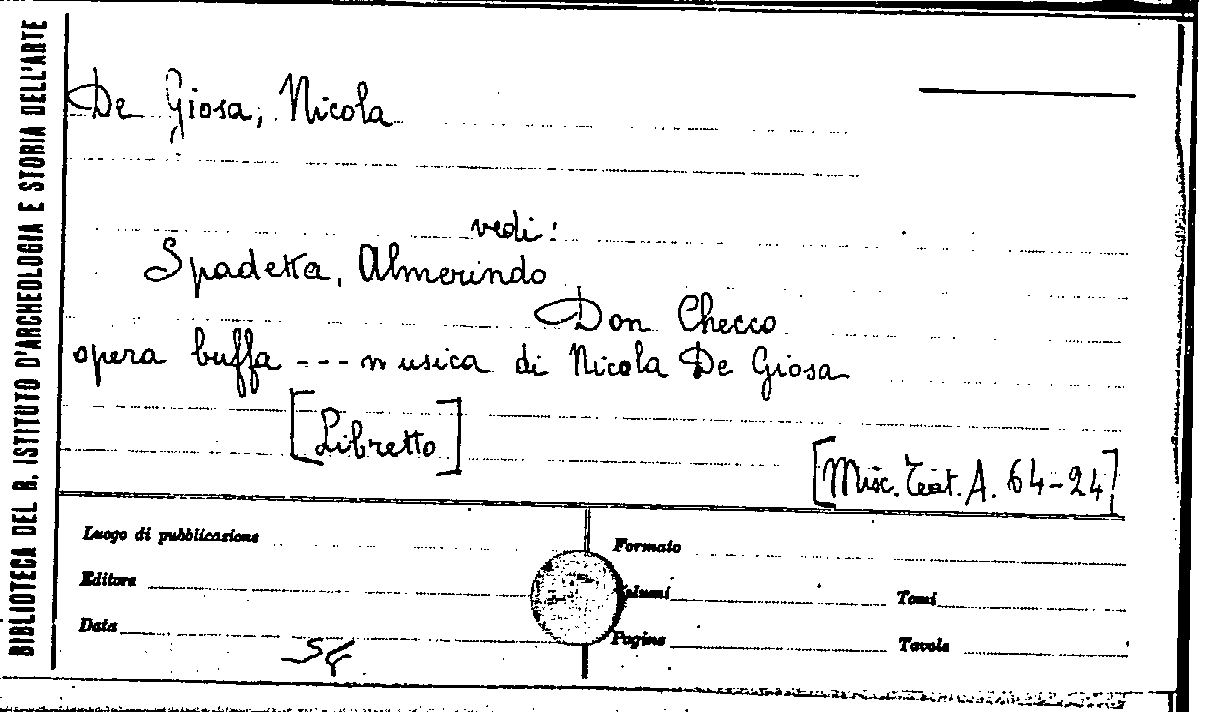 BIBLIOTECA DEL R. ISTITUTO D'ARCHEOLOGIA E STORIA DELL'ARTE
De Giosa, Nicola
vedi:
Spadetta, Almerindo
Don Checco
opera buffa --- musica di Nicola De Giosa
[Libretto]
[Misc. Teat. A. 64-24]
Luogo di pubblicazione
Formato
Editore
Volumi
Tomi
Data
Pagine
Tavole